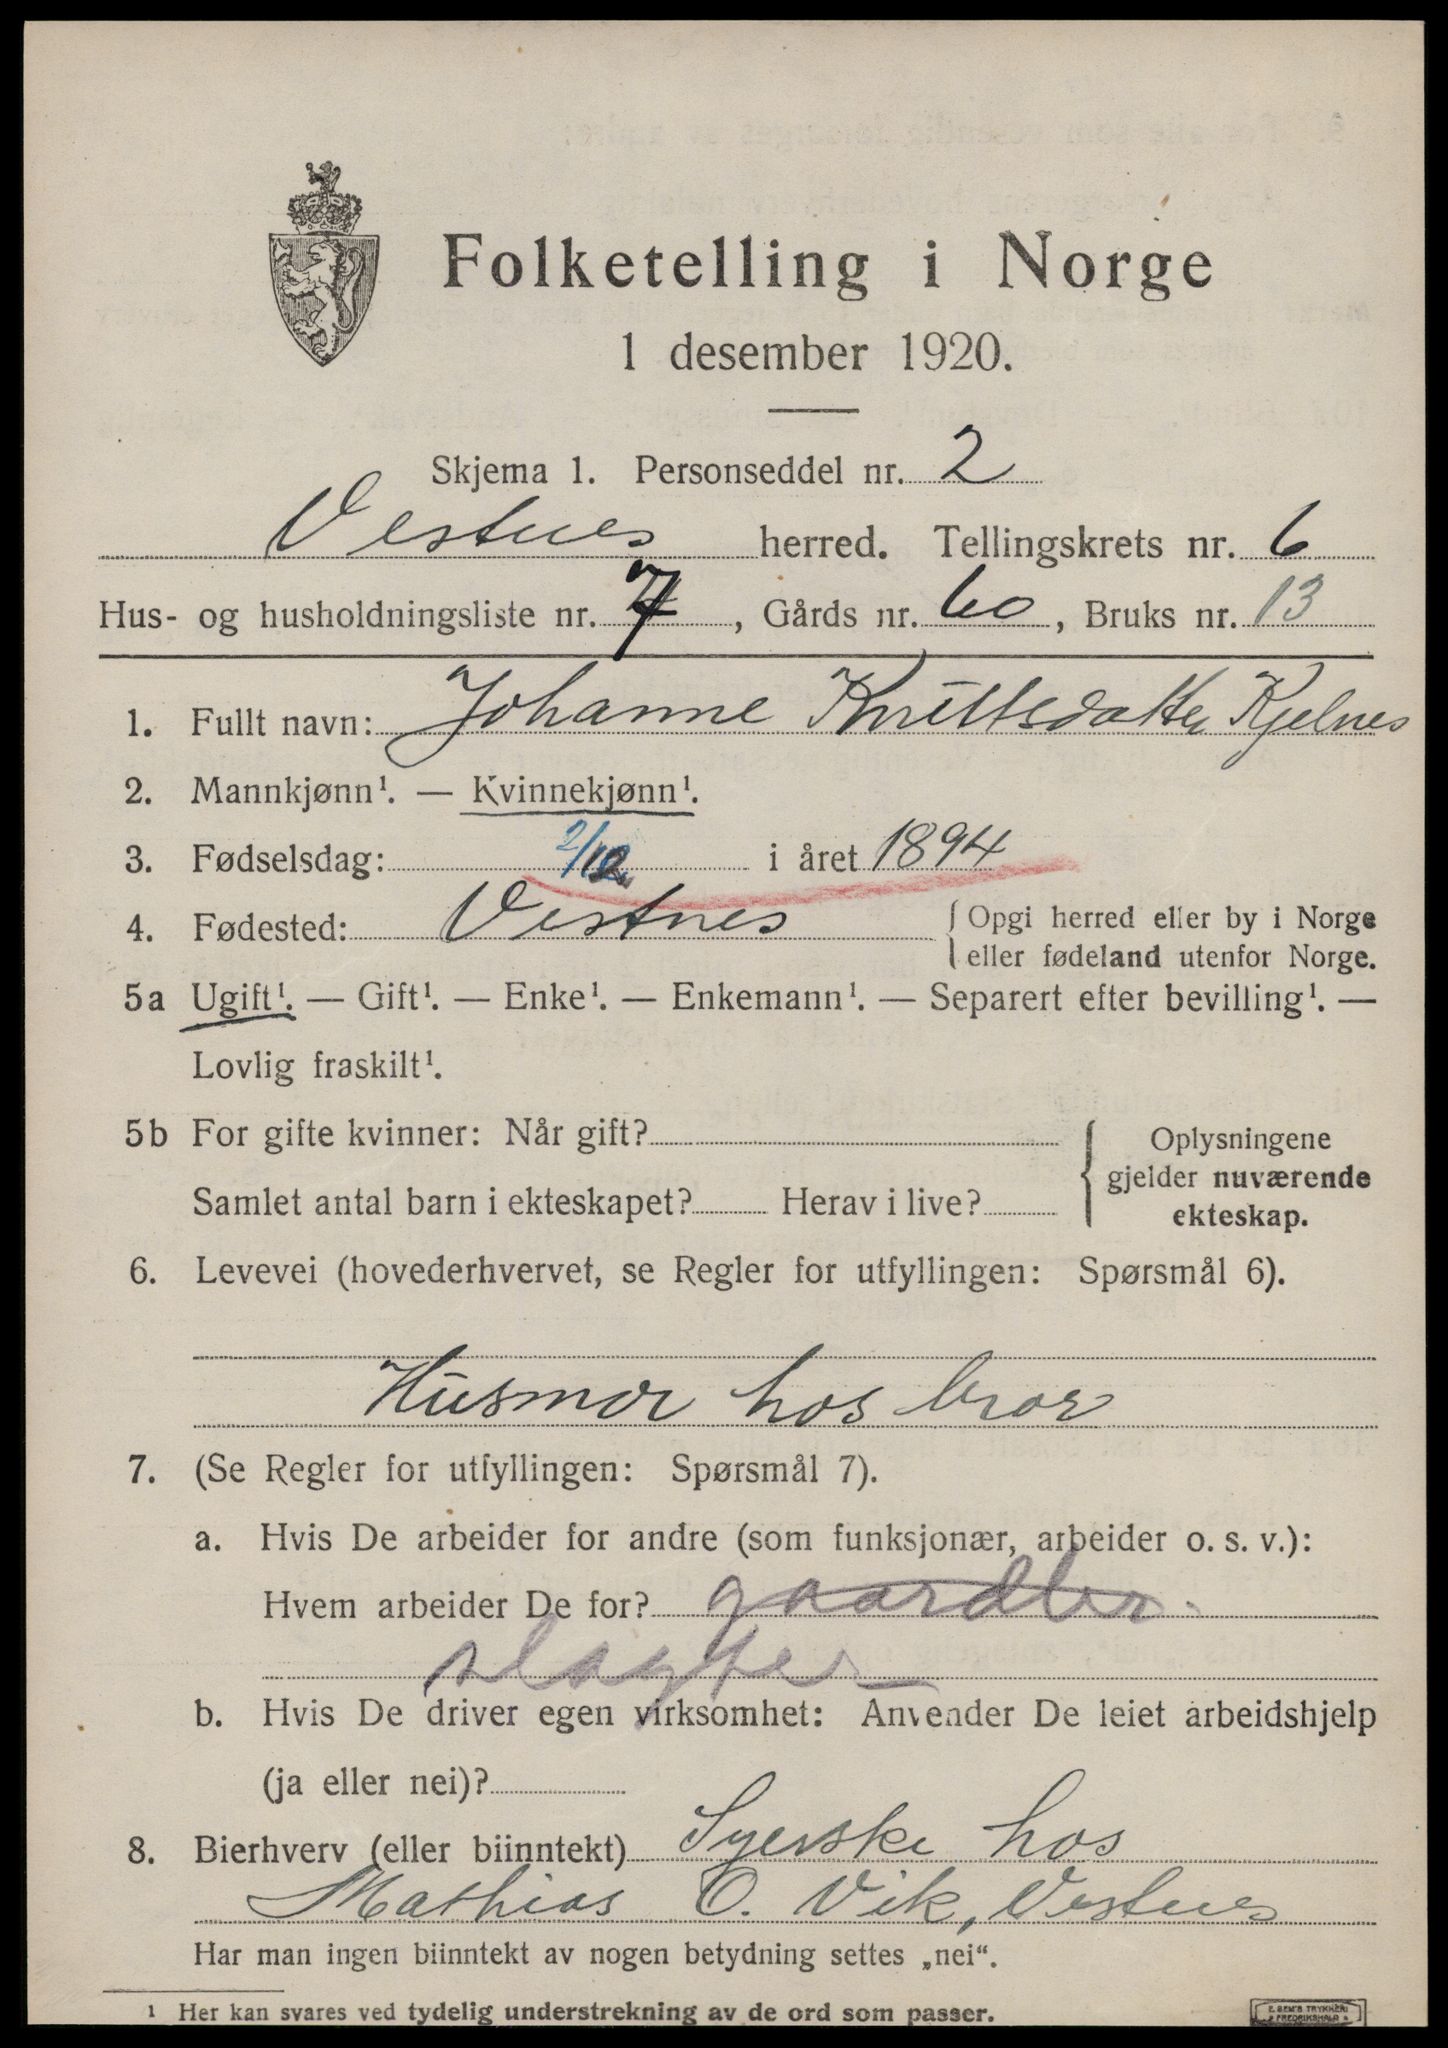 Folketelling i Norge
1 desember 1920.
Skjema 1. Personseddel nr. 2
Vestnes herred. Tellingskrets nr. 6
Hus- og husholdningsliste nr. 7, Gårds nr. 60, Bruks nr. 13
1. Fullt navn: Johanne Knutsdatter Kjelnes
2. Mannkjønn¹. — Kvinnekjønn¹.
3. Fødselsdag: 2/12 i året 1894
4. Fødested: Vestnes { Opgi herred eller by i Norge
eller fødeland utenfor Norge.
5a Ugift¹. — Gift¹. — Enke¹. — Enkemann¹. — Separert efter bevilling¹. —
Lovlig fraskilt¹.
5b For gifte kvinner: Når gift? { Oplysningene
gjelder nuværende
Samlet antal barn i ekteskapet? Herav i live? ekteskap.
6. Levevei (hovederhvervet, se Regler for utfyllingen: Spørsmål 6).
Husmor hos bror
7. (Se Regler for utfyllingen: Spørsmål 7).
a. Hvis De arbeider for andre (som funksjonær, arbeider o. s. v.):
Hvem arbeider De for? gaardbr.
slagter
b. Hvis De driver egen virksomhet: Anvender De leiet arbeidshjelp
(ja eller nei)?
8. Bierhverv (eller biinntekt) Syerske hos
Mathias O. Vik, Vestnes
Har man ingen biinntekt av nogen betydning settes „nei“.
¹ Her kan svares ved tydelig understrekning av de ord som passer.
E. SEM'S TRYKKERI
FREDRIKSHALD